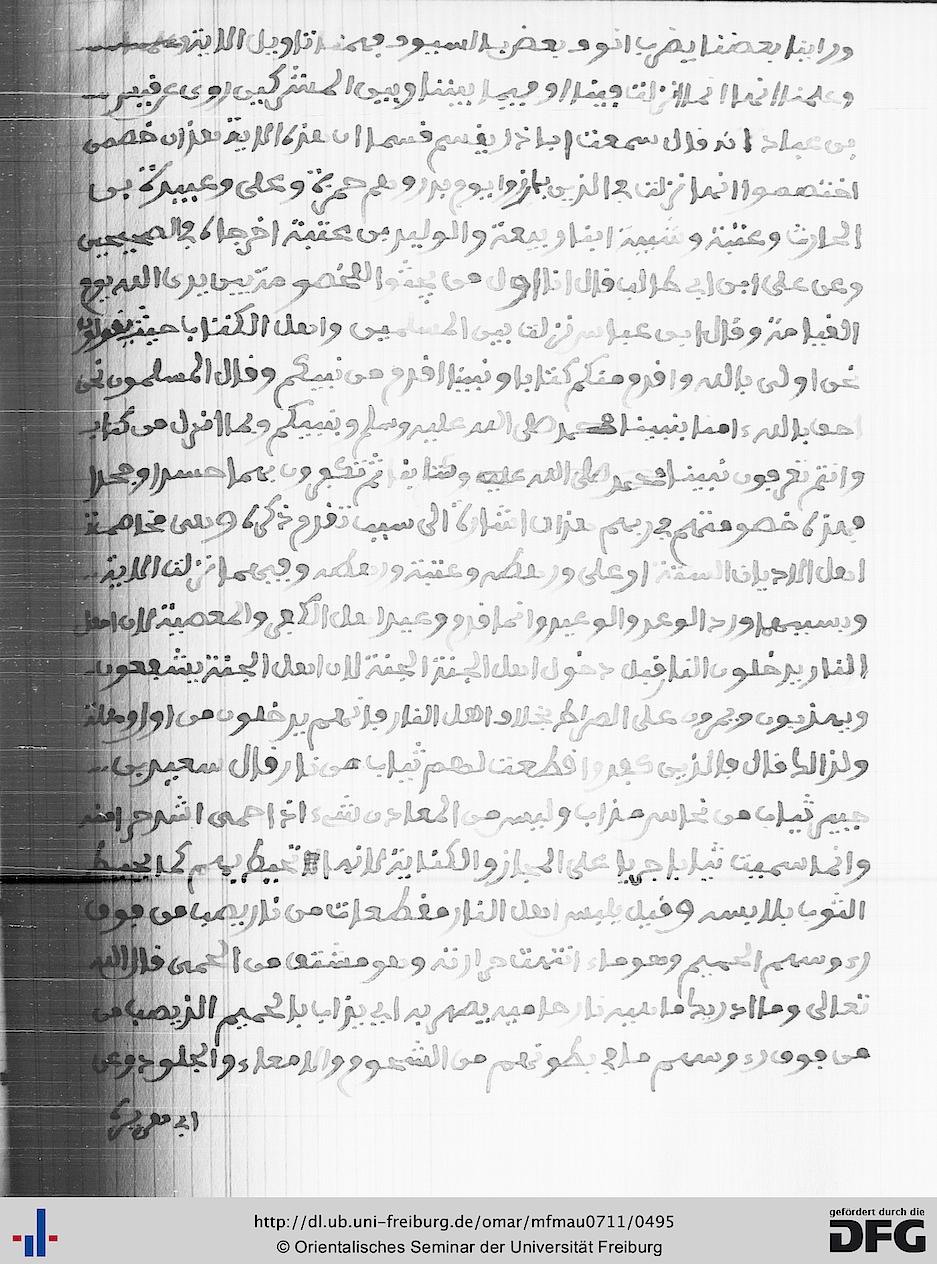 ورأينا بعضنا يضرب انوف بعض بالسيوف فهمنا تاويل الاية
وعلمنا انما انزلت فينا او فيما بيننا وبين المشركين روى عن قيس
بن عباد انه قال سمعت ابا ذر يقسم قسما ان هذه الاية هذان خصمن
اختصموا انما نزلت في الذين بارزوا يوم بدر وهم حمزة وعلى وعبيدة بن
الحارث وعتبة وشيبة ابنا ربيعة والوليد بن عتبة اخرجاه في الصحيحين
وعن على ابن ابي طالب قال انا اول من يجثوا للخصومة بين يدي الله يوم
القيامة وقال ابن عباس نزلت بين المسلمين واهل الكتاب حيث يقولون
نحن اولى بالله واقدم منكم كتابا ونبينا اقدم من نبيكم وقال المسلمون نحن
احق بالله ءامنا بنبينا محمد صلى الله عليه وسلم وبنبيكم وبما انزل من كتاب
وانتم تعرفون نبينا محمد صلى الله عليه وكتابنا ثم تكفرون بهما حسدا وجحدا
فهذه خصومتهم في ربهم هذان اشارة الى سبب تقدم ذكره وهي مخاصمة
اهل الاديان الستة او على ورهطه وعتبة ورهطه وفيهما نزلت الاية
وبسببهما ورد الوعد والوعيد وانما قدم وعيد اهل الكفر والمعصية لان اهل
النار يدخلون النار قبل دخول اهل الجنة الجنة لان اهل الجنة يشفعون
ويعذبون ويمرون على الصراط بخلاف اهل النار فانهم يدخلون من اول وهلة
ولذالك قال فالذين كفروا قطعت لهم ثياب من نار قال سعيد بن
جبير ثياب من نحاس مذاب وليس من المعادن شيء اذا حمى اشد حرا منه
وانما سميت ثيابا جريا على المجاز والكناية لانها تحيط بهم كما يحيط
الثوب بلابسه وقيل يلبس اهل النار مقطعات من نار يصب من فوق
رءوسهم الحميم وهو ماء انتهت حرارته وهو مشتق من الحمى قال الله
تعالى وما ادريك ما هيه نار حامية يصهر به اي يذاب بالحميم الذي يصب من
من فوق رءوسهم ما في بطونهم من الشحوم والامعاء والجلود وعن
ابي هريرة
http://dl.ub.uni-freiburg.de/omar/mfmau0711/0495
© Orientalisches Seminar der Universität Freiburg
gefördert durch die
DFG